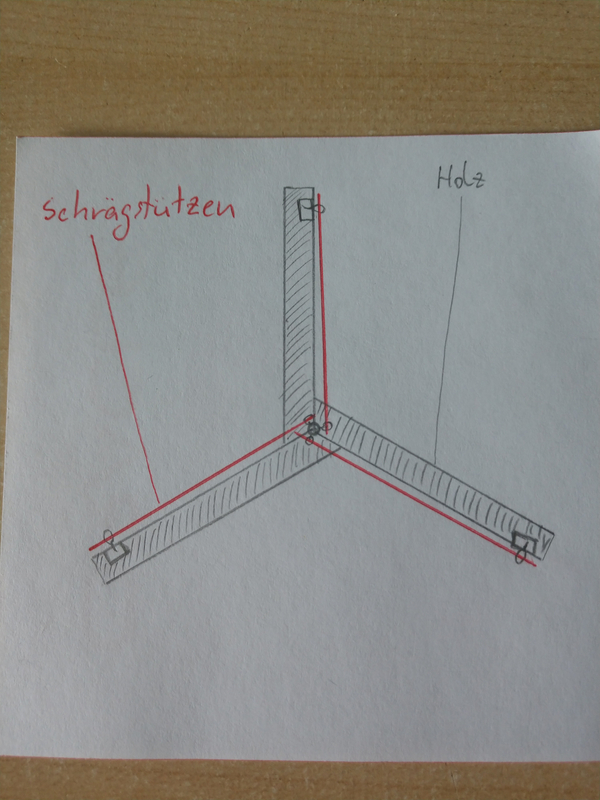 Schrägstützen
Holz